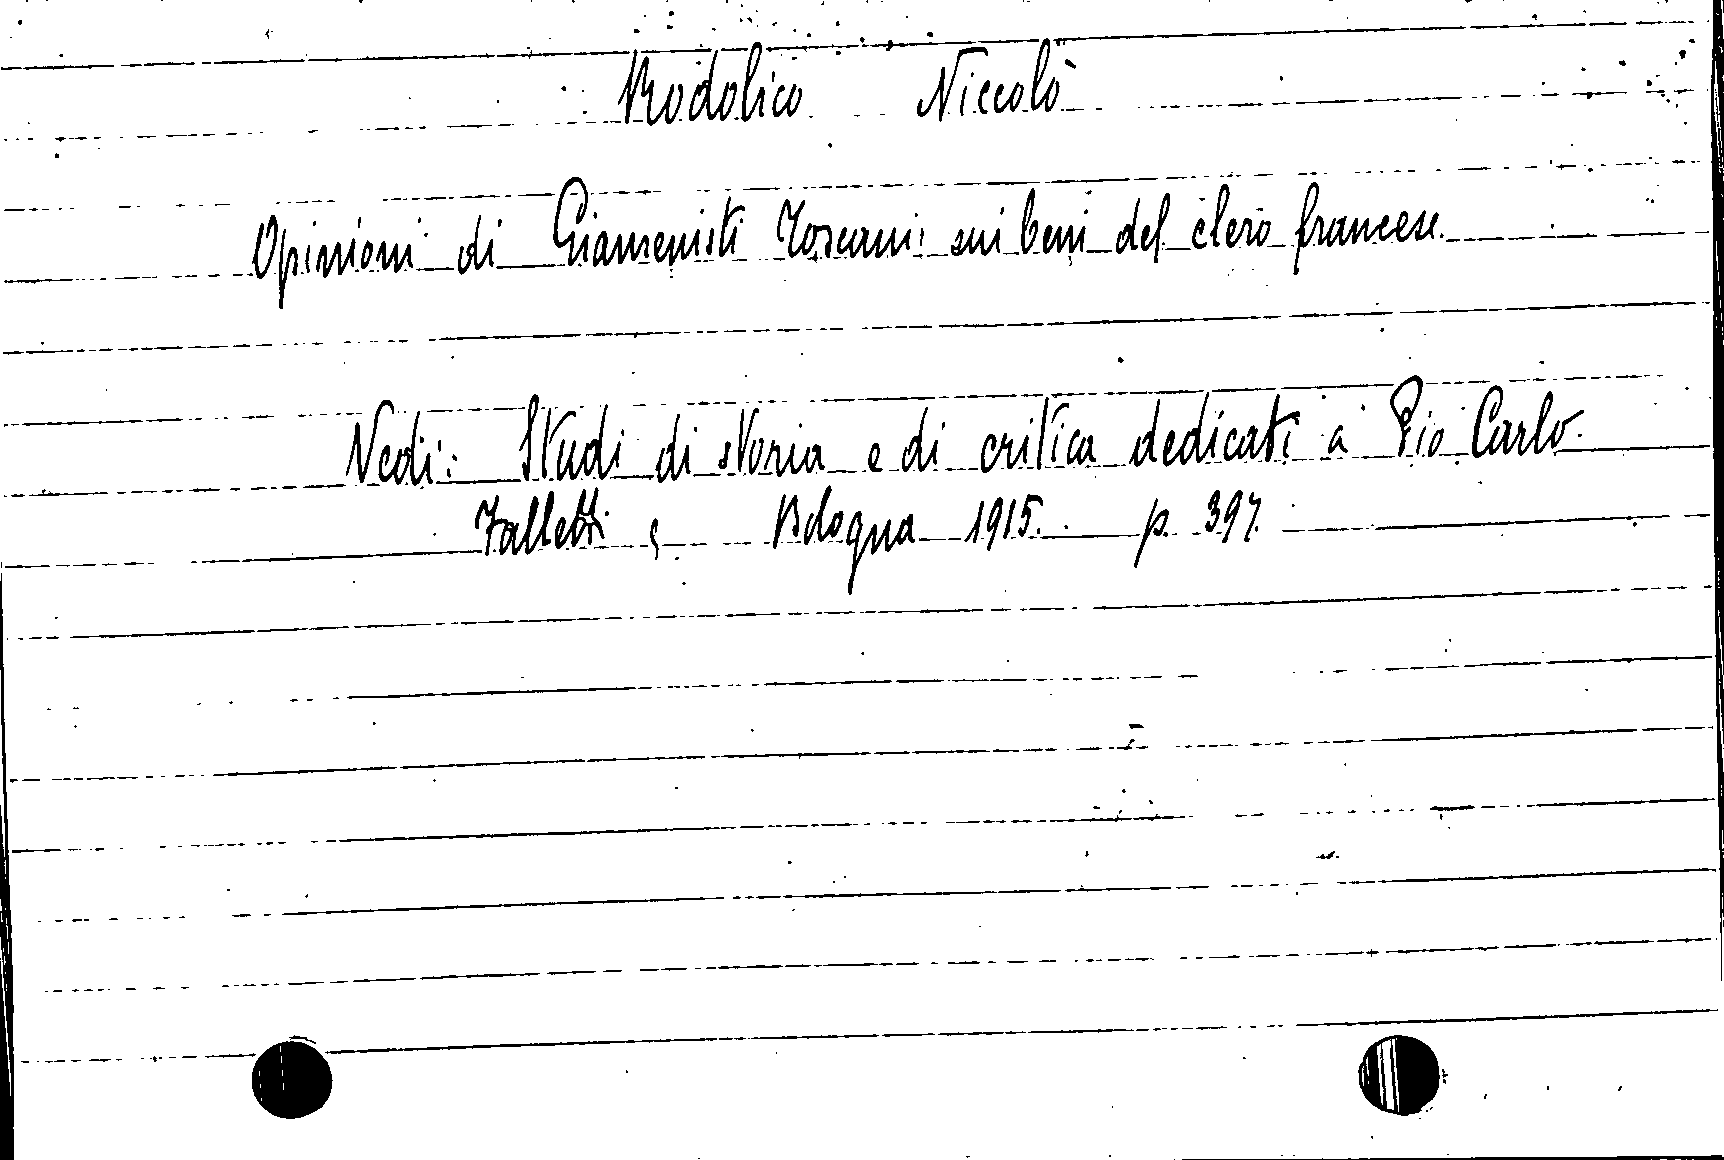 Rodolico Niccolò
Opinioni di Giansenisti Toscani sui beni del clero francese.
Vedi: Studi di storia e di critica dedicati a Pio Carlo
Falletti, Bologna 1915. p. 397.